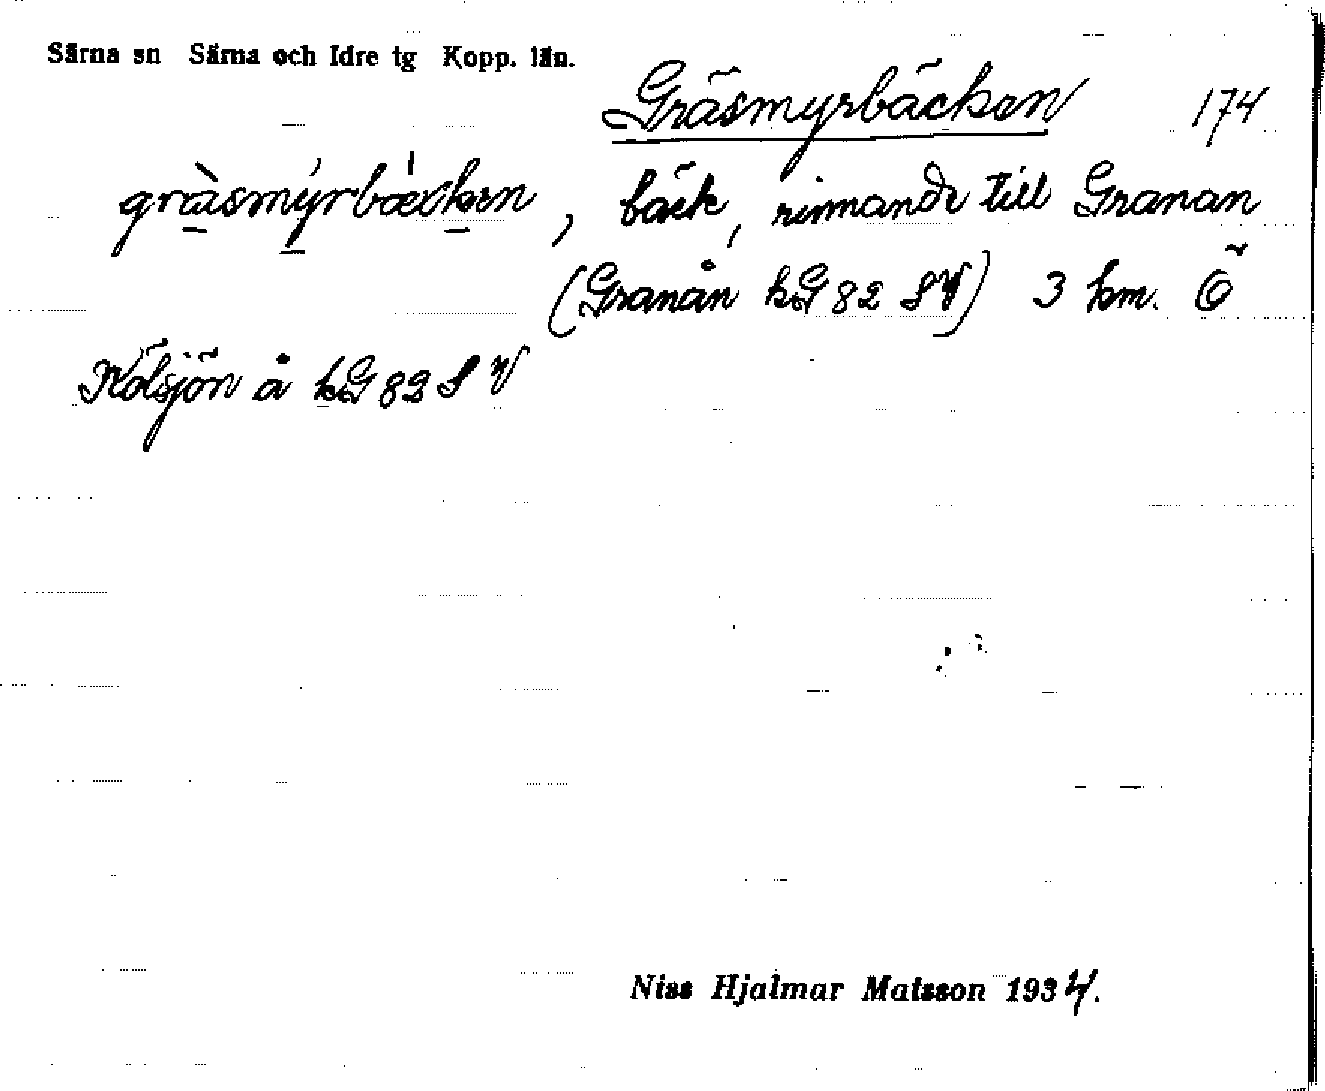 Särna sn Särna och Idre tg Kopp. län.
Gräsmyrbäcken 174
gràsmýrbæcken, bäck, rinnande till Granan
(Granån kG 82 SV) 3 km. Ö
Kölsjön å kG 82 S V
Niss Hjalmar Matsson 1934.